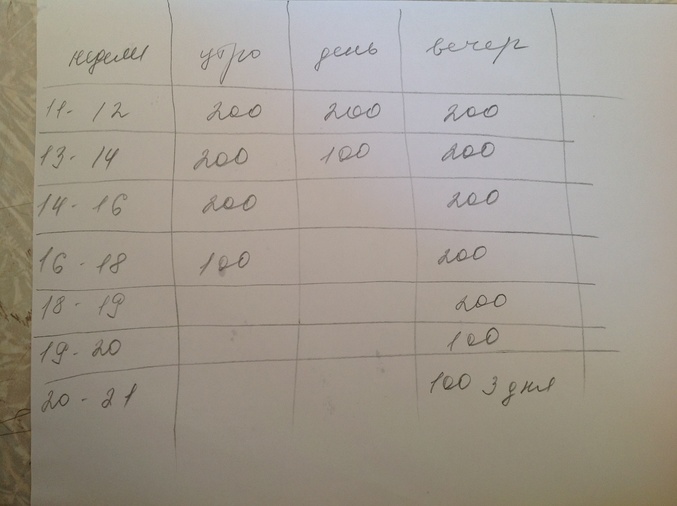 недели утро день вечер
11- 12 200 200 200
13- 14 200 100 200
14- 16 200 200
16 - 18 100 200
18 - 19 200
19- 20 100
20 - 21 100 3 дня